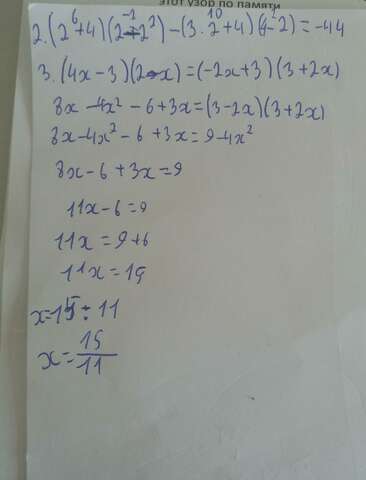 этот узор по памяти
2.(2⁶+4)(2⁻¹-2²)-(3·2¹⁰+4)(4²-2)=-44
3.(4x-3)(2-x)=(-2x+3)(3+2x)
8x-4x²-6+3x=(3-2x)(3+2x)
8x-4x²-6+3x=9-4x²
8x-6+3x=9
11x-6=9
11x=9+6
11x=15
x=15÷11
x=15/11